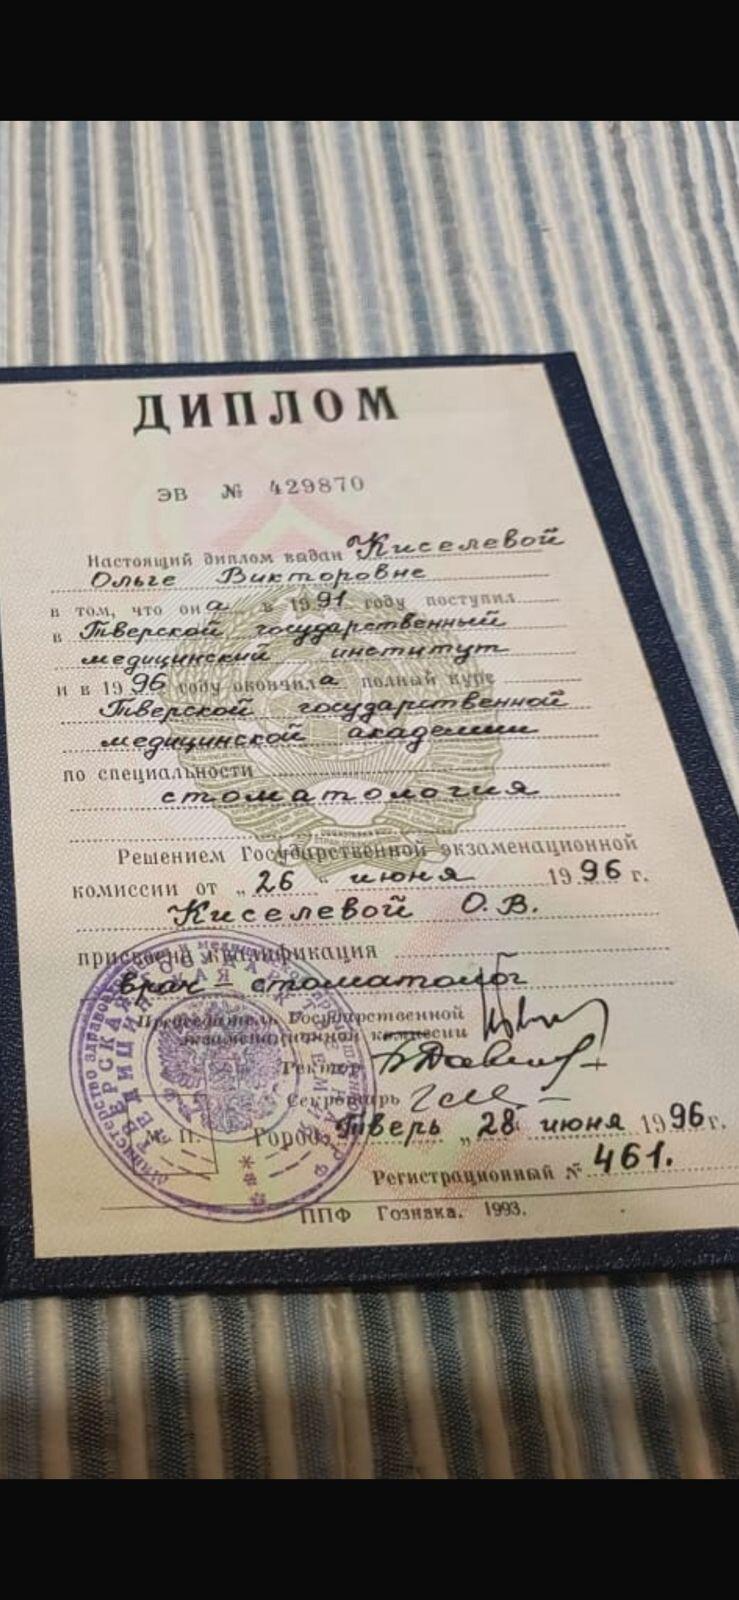 ДИПЛОМ
ЭВ № 429870
Настоящий диплом выдан Киселевой
Ольге Викторовне
в том, что она в 1991 году поступил
в Тверской государственный
медицинский институт
и в 1996 году окончила полный курс
Тверской государственной
медицинской академии
по специальности
стоматология
Решением Государственной экзаменационной
комиссии от „26“ июня 1996 г.
Киселевой О.В.
присвоена квалификация
врач-стоматолог
Председатель Государственной
экзаменационной комиссии
Ректор
Секретарь
М. П.
Город Тверь „28 июня 1996 г.
Регистрационный № 461.
ППФ Гознака. 1993.